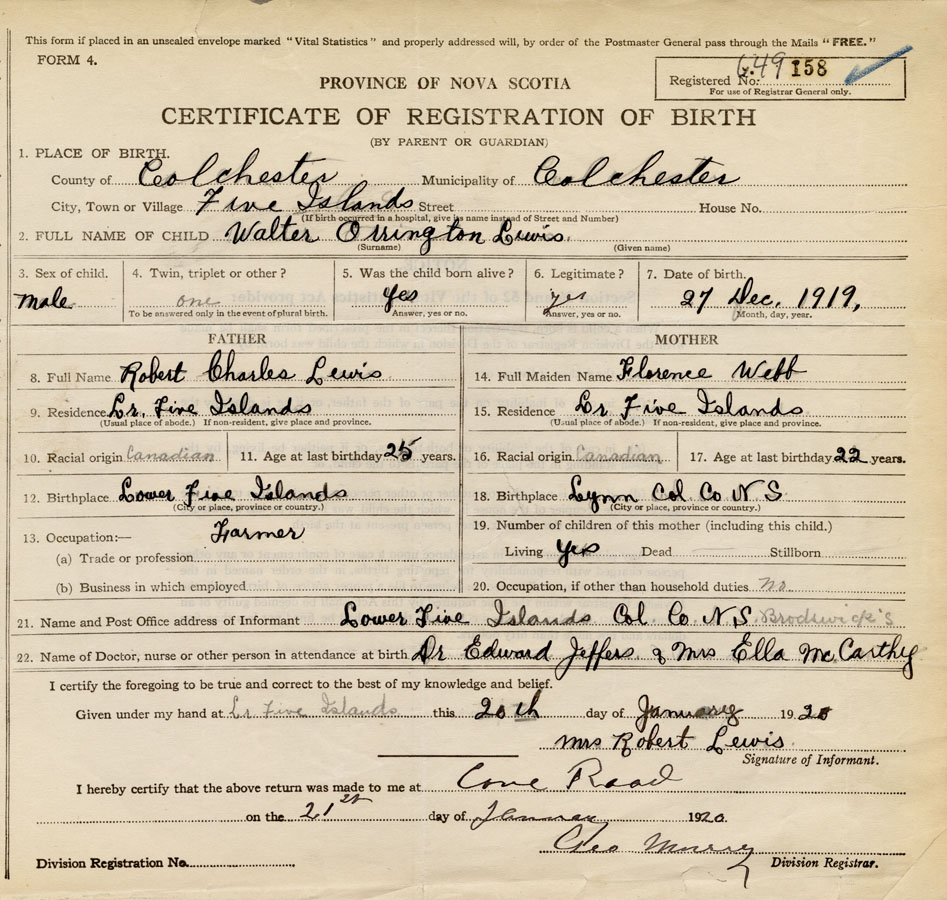 This form if placed in an unsealed envelope marked "Vital Statistics" and properly addressed will, by order of the Postmaster General pass through the Mails "FREE."
FORM 4.
PROVINCE OF NOVA SCOTIA
Registered No. 649 158
For use of Registrar General only.
CERTIFICATE OF REGISTRATION OF BIRTH
(BY PARENT OR GUARDIAN)
1. PLACE OF BIRTH.
County of Colchester Municipality of Colchester
City, Town or Village Five Islands Street House No.
(If birth occurred in a hospital, give its name instead of Street and Number)
2. FULL NAME OF CHILD Walter Orrington Lewis
(Surname) (Given name)
3. Sex of child. 4. Twin, triplet or other? 5. Was the child born alive? 6. Legitimate? 7. Date of birth.
male one Yes yes 27 Dec. 1919,
To be answered only in the event of plural birth. Answer, yes or no. Answer, yes or no. Month, day, year.
FATHER MOTHER
8. Full Name Robert Charles Lewis 14. Full Maiden Name Florence Webb
9. Residence Lr. Five Islands 15. Residence Lr Five Islands
(Usual place of abode.) If non-resident, give place and province. (Usual place of abode.) If non-resident, give place and province.
10. Racial origin Canadian 11. Age at last birthday 25 years. 16. Racial origin Canadian 17. Age at last birthday 22 years.
12. Birthplace Lower Five Islands 18. Birthplace Lynn Col. Co N S
(City or place, province or country.) (City or place, province or country.)
13. Occupation:— Farmer 19. Number of children of this mother (including this child.)
(a) Trade or profession Living Yes Dead Stillborn
(b) Business in which employed 20. Occupation, if other than household duties no
21. Name and Post Office address of Informant Lower Five Islands Col Co N S
22. Name of Doctor, nurse or other person in attendance at birth Dr Edward Jeffers & Mrs Ella McCarthy
I certify the foregoing to be true and correct to the best of my knowledge and belief.
Given under my hand at Lr Five Islands this 20th day of January 1920
Mrs Robert Lewis
Signature of Informant.
I hereby certify that the above return was made to me at Cove Road
on the 21st day of January 1920.
Geo Murray
Division Registration No. Division Registrar.